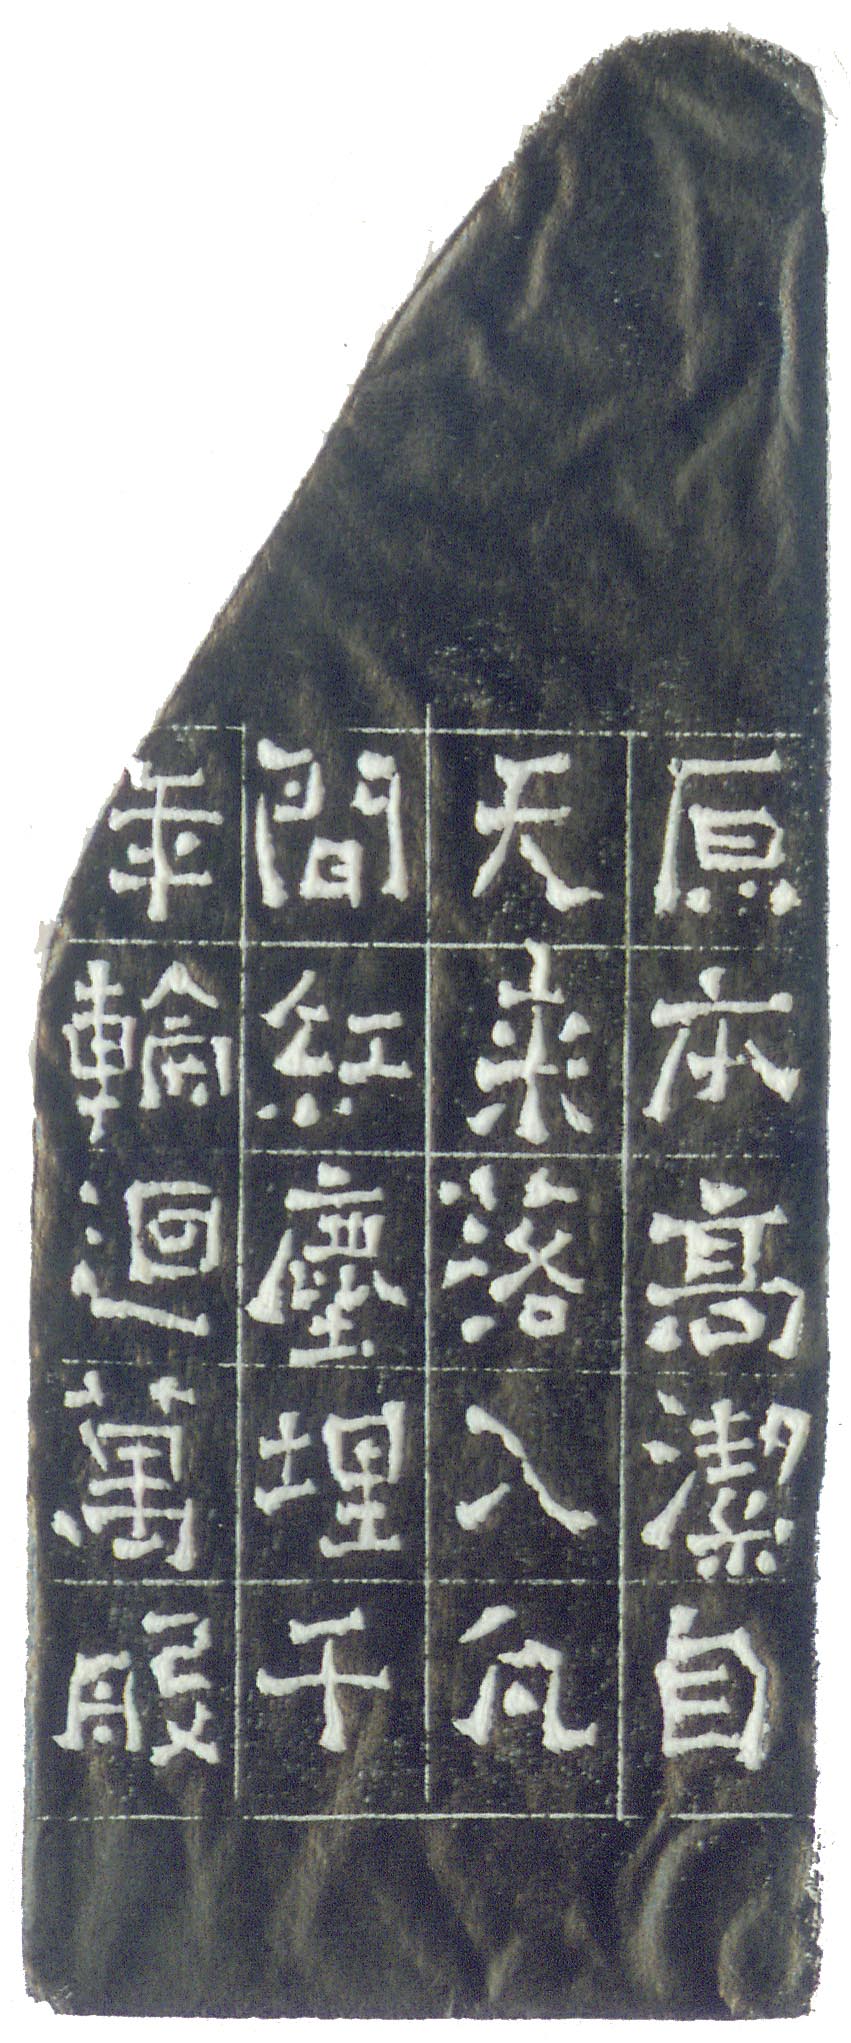 原本高潔自
天來落入凡
間紅塵埋千
年輪迴萬般